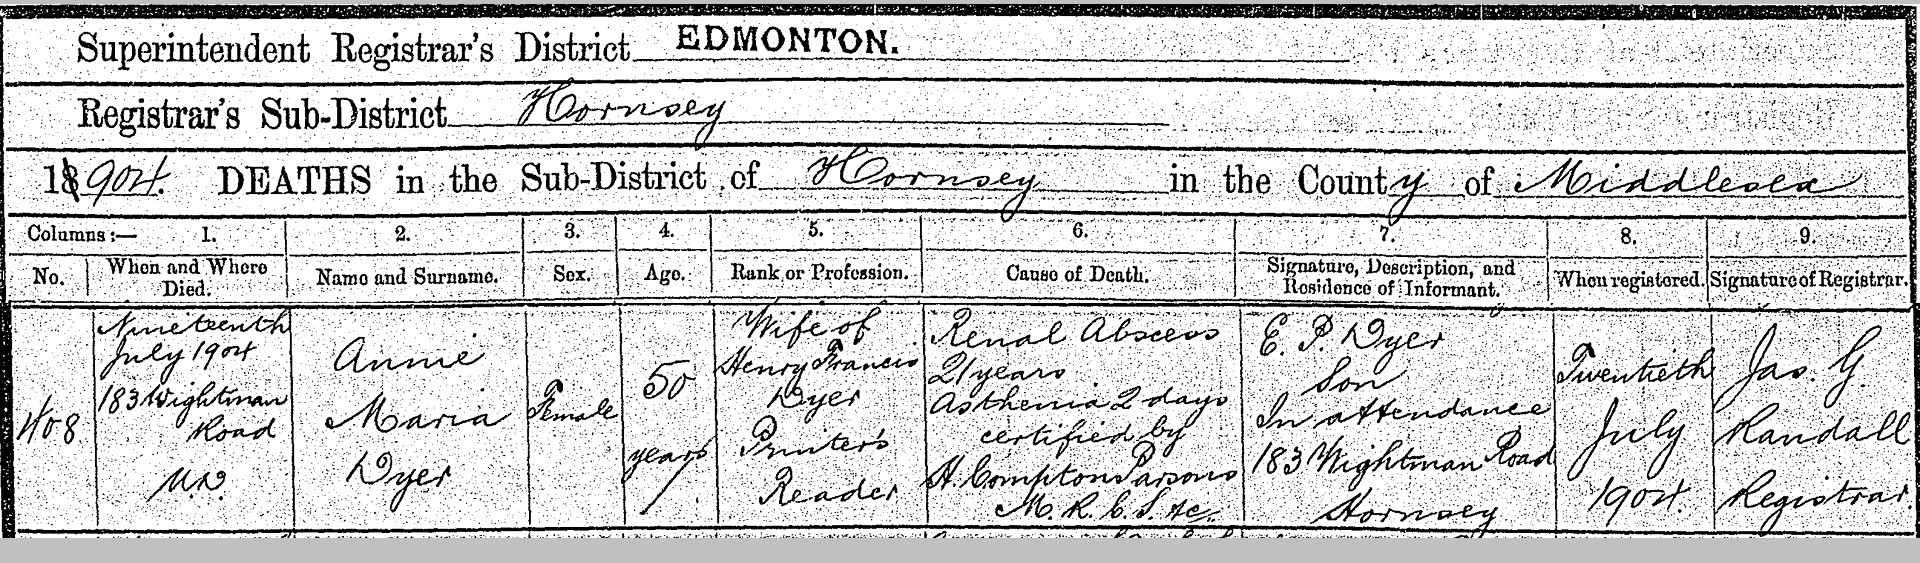 Superintendent Registrar's District EDMONTON.
Registrar's Sub-District Hornsey
1904. DEATHS in the Sub-District of Hornsey in the County of Middlesex
Columns:— 1. 2. 3. 4. 5. 6. 7. 8. 9.
No. When and Where Died. Name and Surname. Sex. Age. Rank or Profession. Cause of Death. Signature, Description, and Residence of Informant. When registered. Signature of Registrar.
408
Nineteenth
July 1904
183 Wightman
Road
U.D.
Annie
Maria
Dyer
Female
50
years
Wife of
Henry Francis
Dyer
Printer's
Reader
Renal Abscess
2 1/2 years
Asthenia 2 days
certified by
H. Compton Parsons
M.R.C.S. &c.
E. P. Dyer
Son
In attendance
183 Wightman Road
Hornsey
Twentieth
July
1904.
Jas. G.
Randall
Registrar.